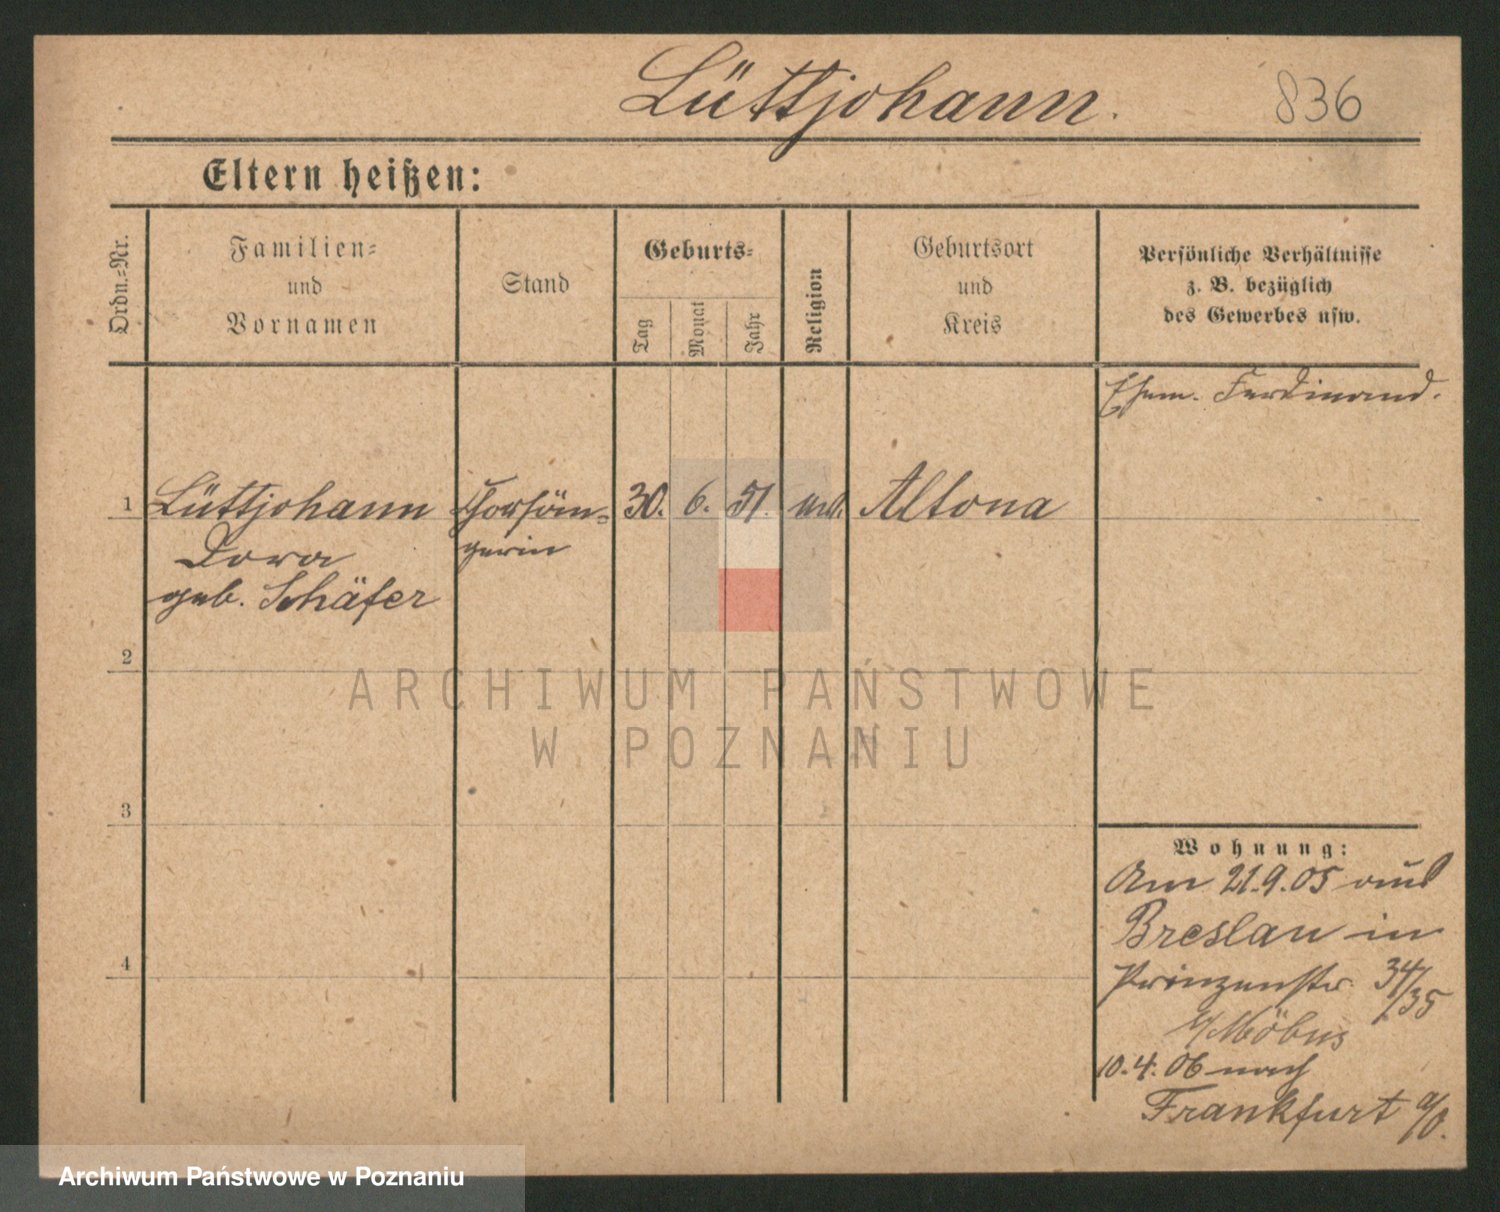 Lüttjohann.
836
Eltern heißen:
Ordn.=Nr.
Familien=
und
Vornamen
Stand
Geburts=
Tag
Monat
Jahr
Religion
Geburtsort
und
Kreis
Persönliche Verhältnisse
z. B. bezüglich
des Gewerbes usw.
Ehem. Ferdinand.
1
Lüttjohann
Dora
geb. Schäfer
Chorsän=
gerin
30. 6. 51.
Altona
2
3
4
Wohnung:
Am 21.9.05 aus
Breslau in
Prinzenstr. 34/35
b/Möbus
10.4.06 nach
Frankfurt a/O.
ARCHIWUM PAŃSTWOWE
W POZNANIU
Archiwum Państwowe w Poznaniu